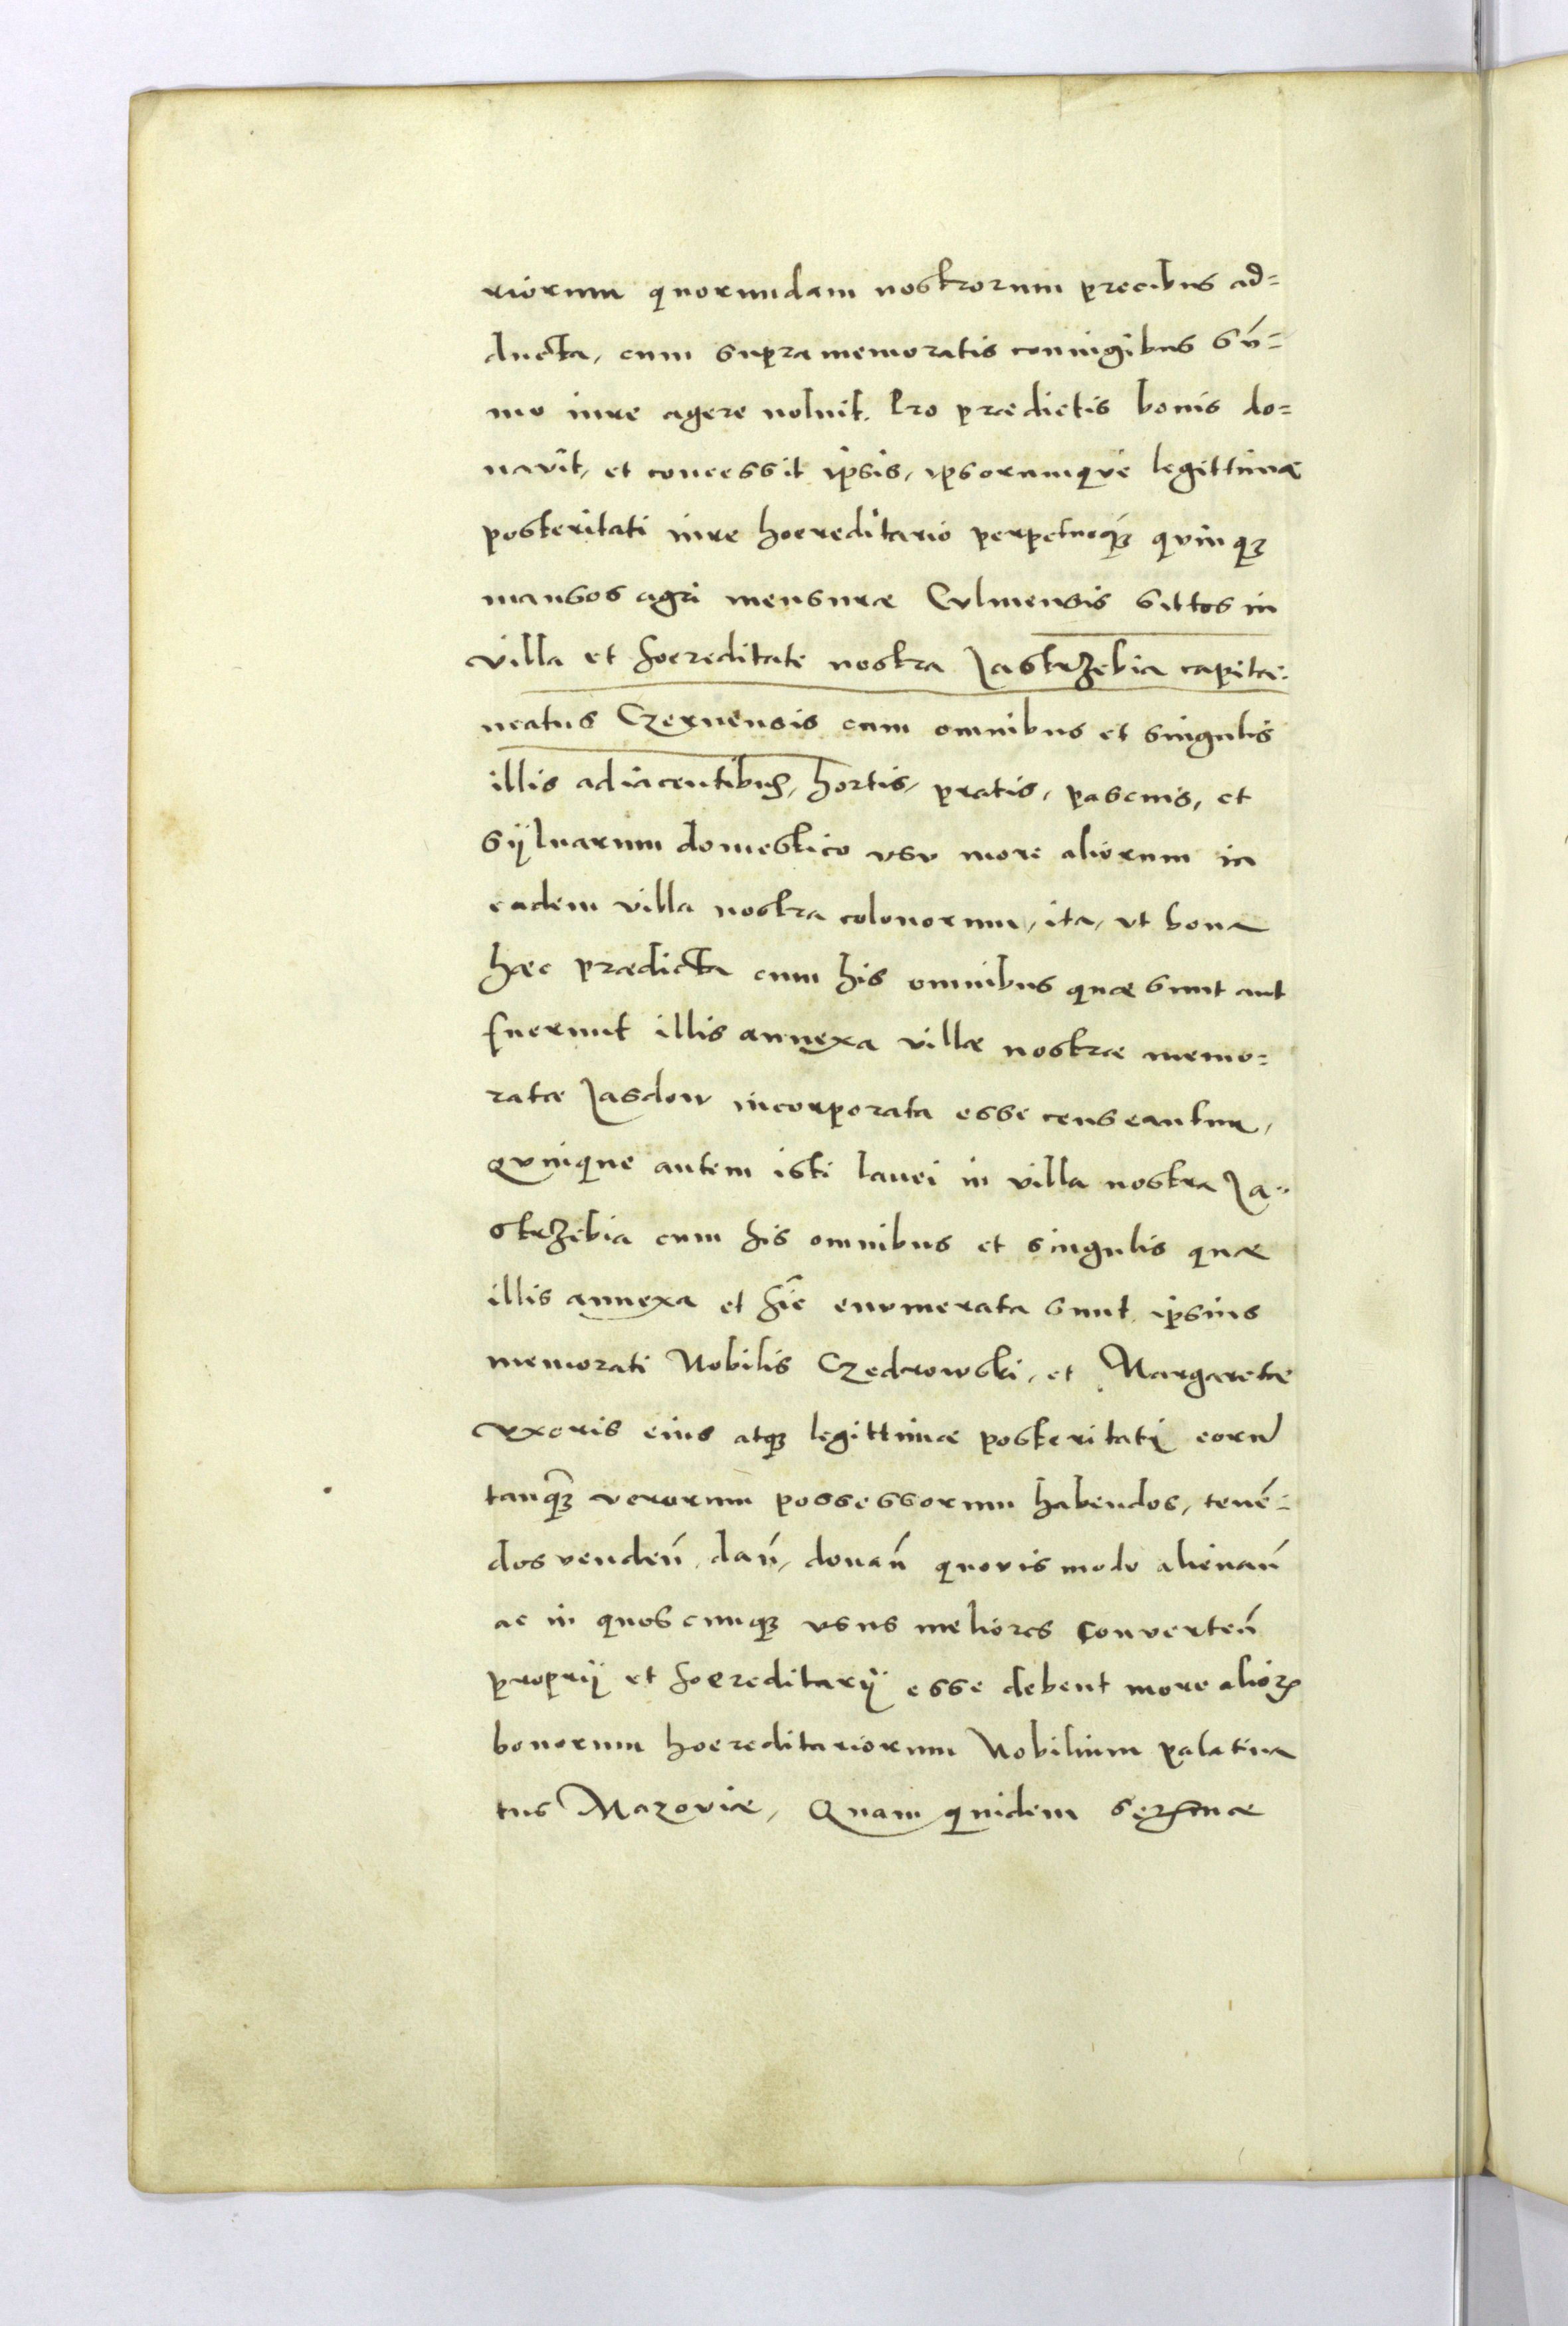 riorum quorundam nostrorum precibus ad=
ducta, cum supra memoratis coniugibus sū=
mo iure agere noluit. Pro prædictis bonis do=
navit, et concessit ipsis, ipsorumque legittimæ
posteritati iure hoereditario perpetuoq́ꝫ quinqꝫ
mansos agri mensuræ Culmensis sittos in
villa et hoereditate nostra Jastrzebia capita=
neatus Czernensis cum omnibus et singulis
illis adiacentibus, hortis, pratis, pascuis, et
syluarum domestico vsu more aliorum in
eadem villa nostra colonorum, ita, vt bona
hæc prædicta cum his omnibus quæ sunt aut
fuerunt illis annexa villæ nostræ memo=
ratæ Jasdow incorporata esse censeantur,
Quinque autem isti lanei in villa nostra Ja=
strzebia cum his omnibus et singulis quæ
illis annexa et hic enumerata sunt ipsius
memorati Nobilis Czedrowski, et Margaretæ
vxoris eius atqꝫ legittimæ posteritati eorū
tanq̃ꝫ verorum possessorum habendos, tenē=
dos venden̄, dan̄, donan̄ quovis modo alienan̄
ac in quoscunqꝫ vsus meliores converten̄
proprij et hoereditarij esse debent more alioꝝ
bonorum hoereditariorum Nobilium palatina
tus Mazoviæ, Quam quidem serꝫmæ